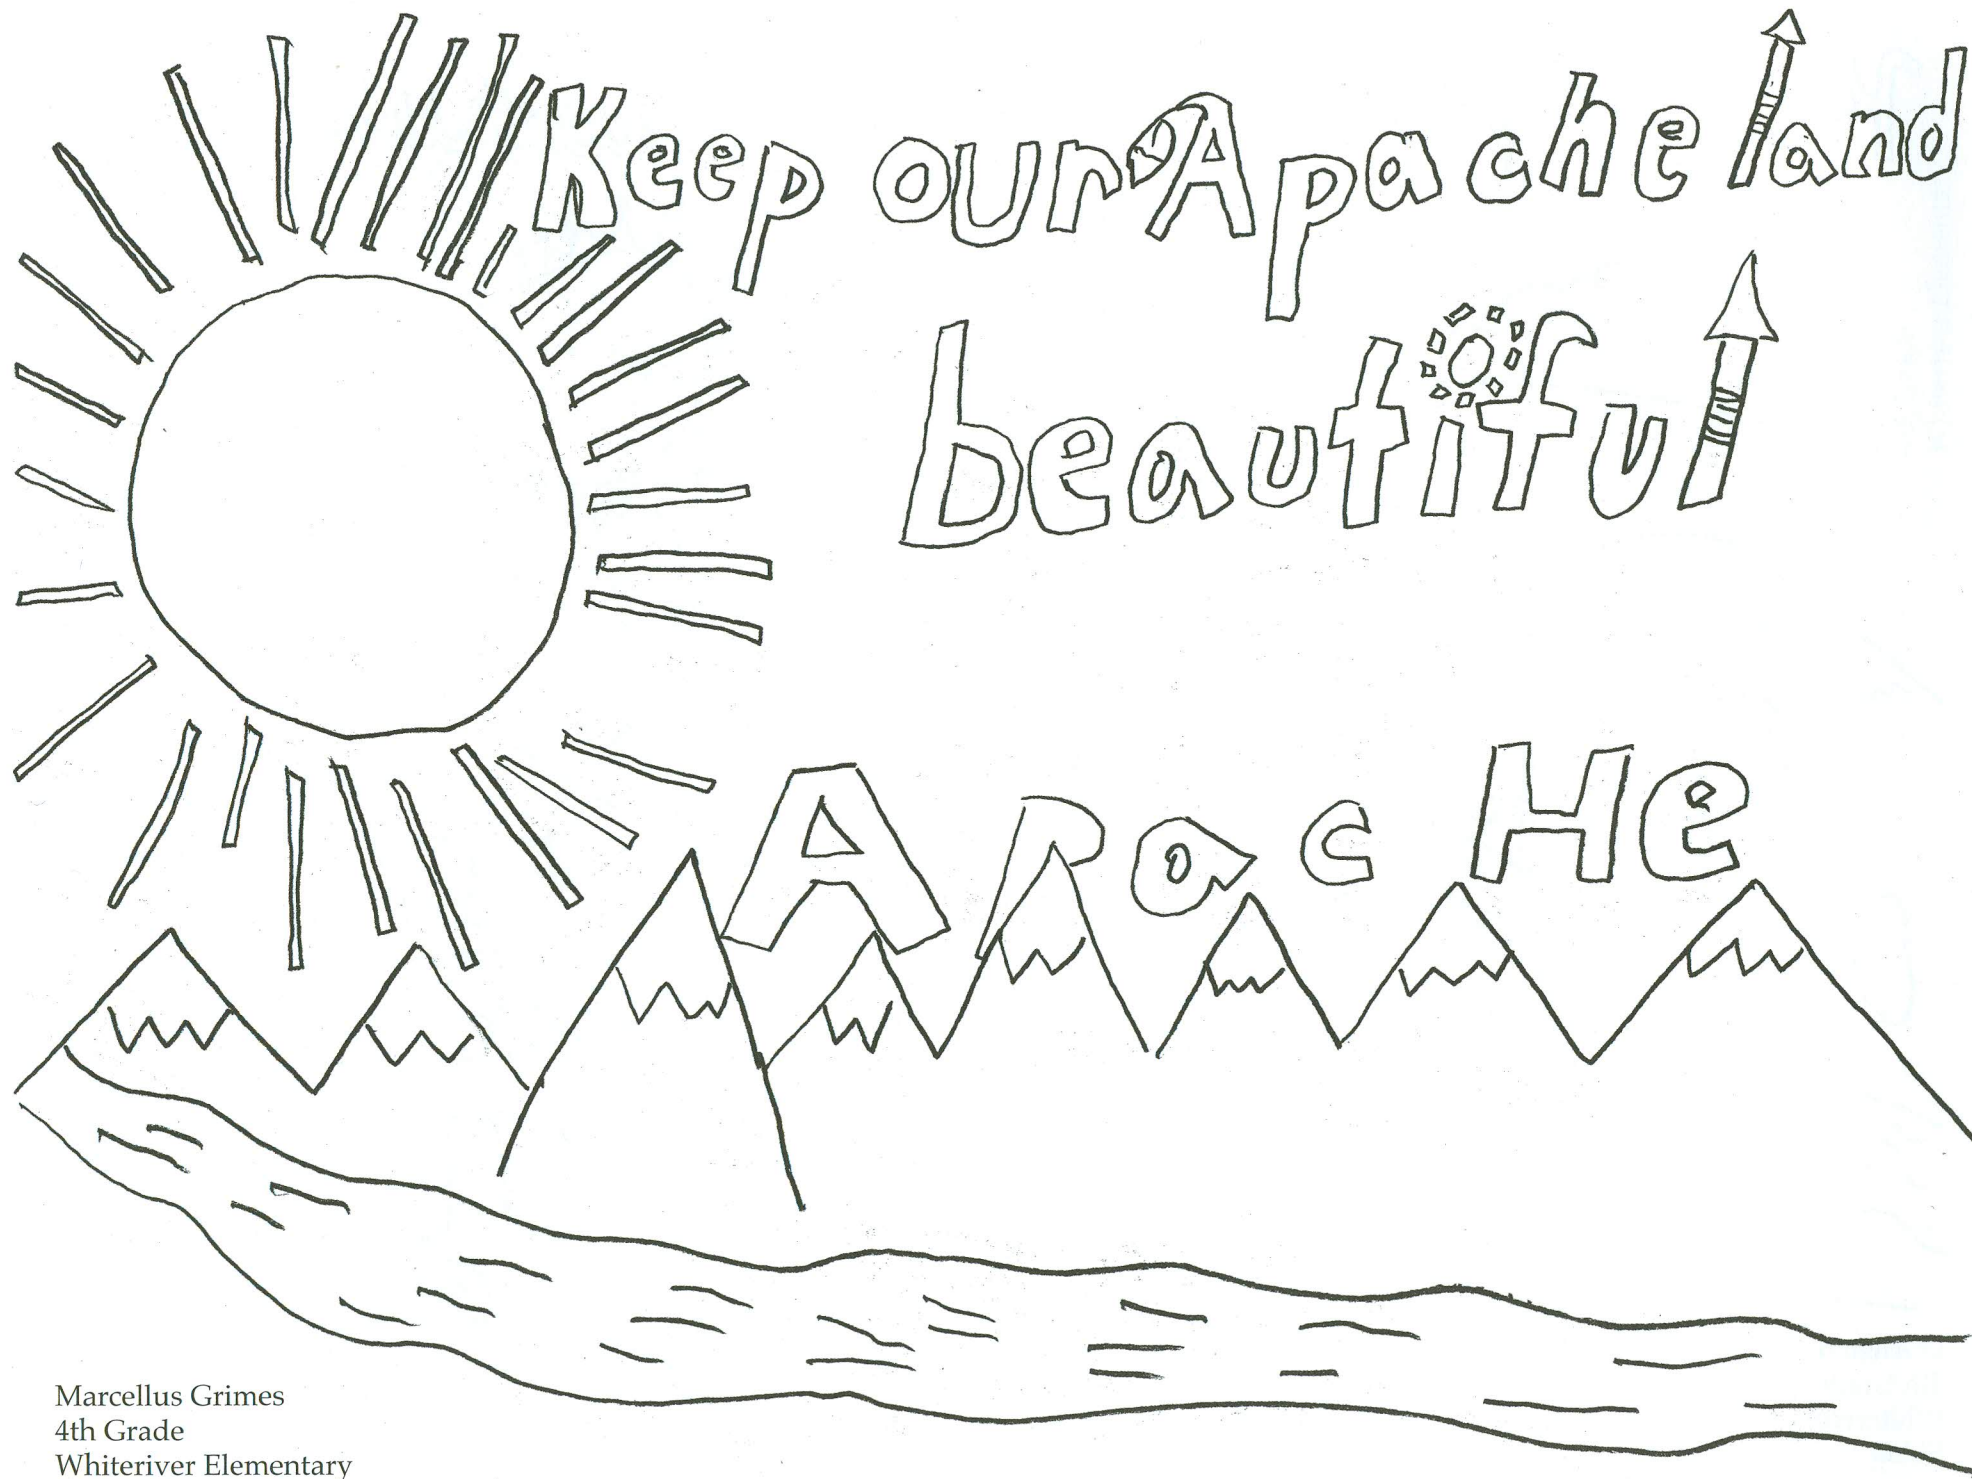 Keep our Apache land
beautiful
ApacHe
Marcellus Grimes
4th Grade
Whiteriver Elementary